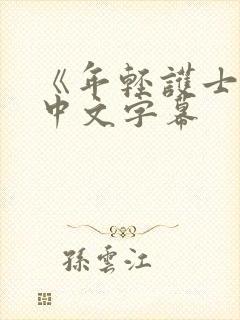 《年輕護士
中文字幕
孫雲江